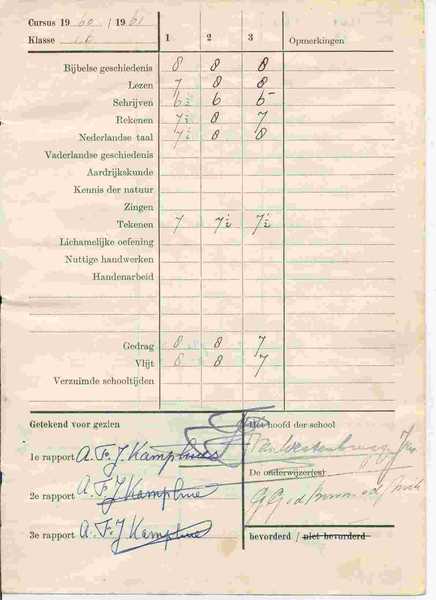 Cursus 1960 / 1961
Klasse 1 2 3 Opmerkingen
Bijbelse geschiedenis 8 8 8
Lezen 7 8 8
Schrijven 6½ 6 6-
Rekenen 7½ 8 7
Nederlandse taal 7½ 8 8
Vaderlandse geschiedenis
Aardrijkskunde
Kennis der natuur
Zingen
Tekenen 7 7½ 7½
Lichamelijke oefening
Nuttige handwerken
Handenarbeid
Gedrag 8 8 7
Vlijt 8 8 7
Verzuimde schooltijden
Getekend voor gezien
Het hoofd der school
1e rapport A. F. J. Kamphues
De onderwijzer(es)
2e rapport A. F. J. Kamphue
3e rapport A. F. J. Kamphue
bevorderd / niet bevorderd